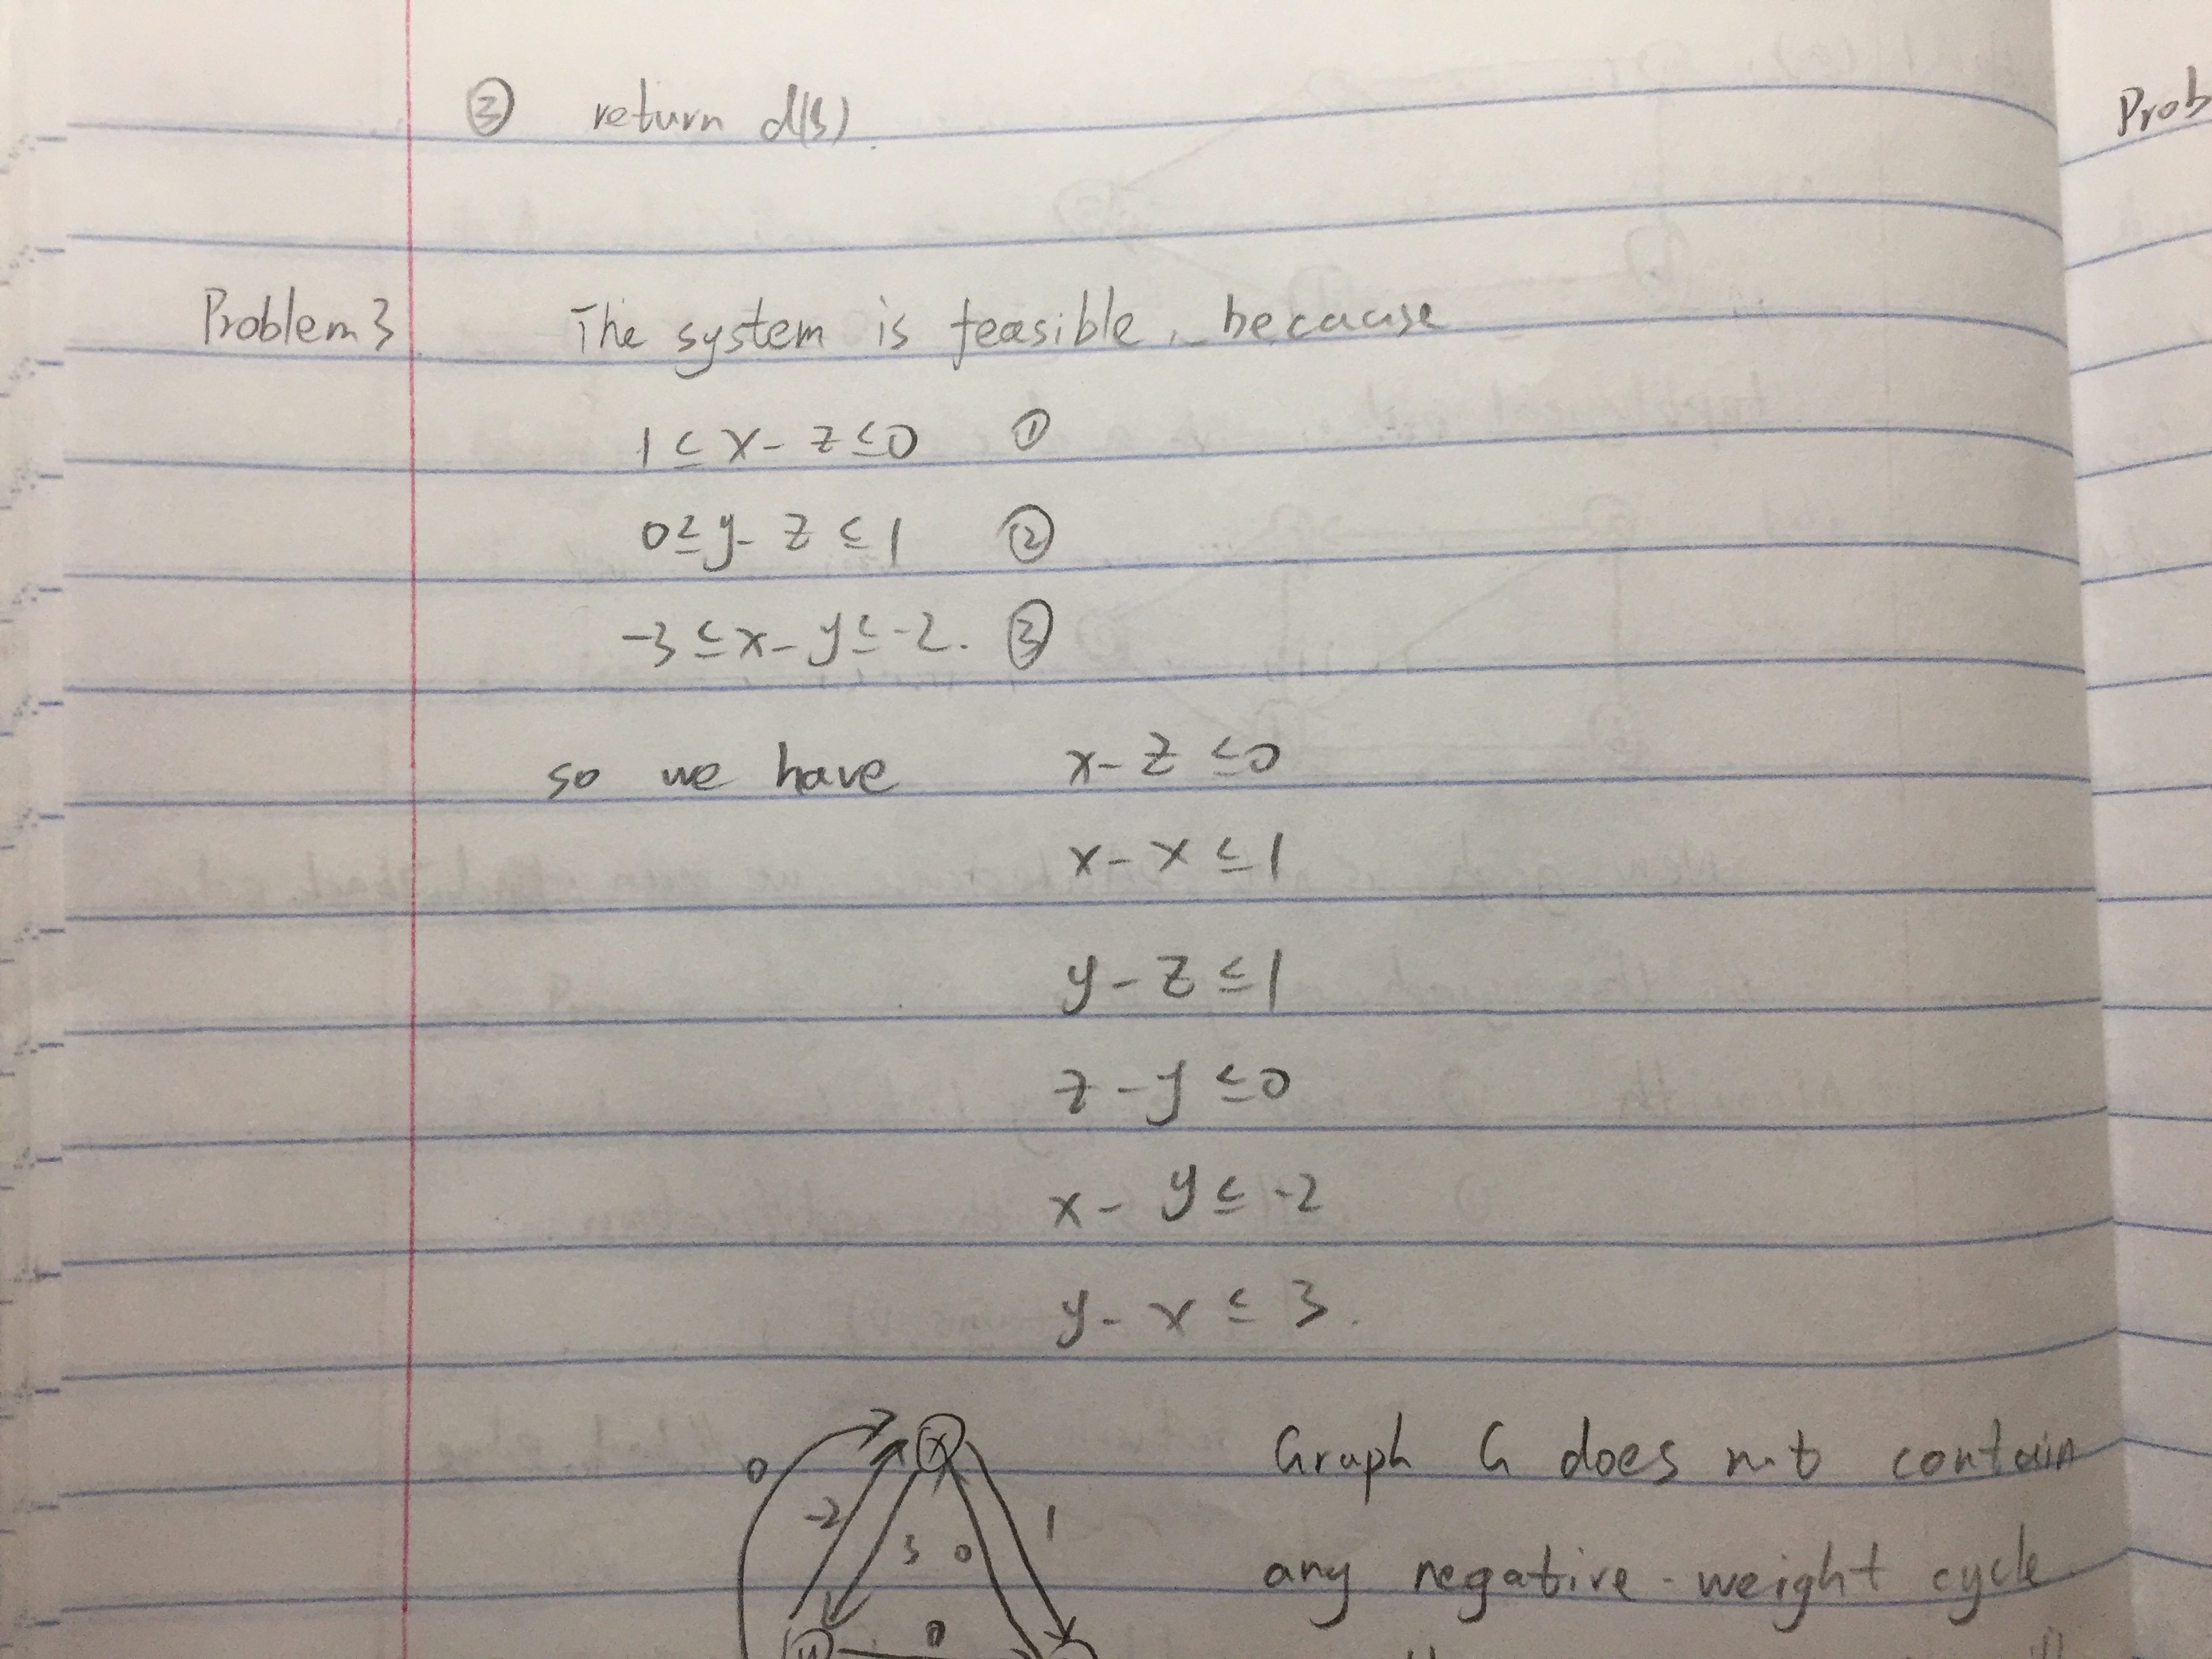 ③ return d(s).
Prob
Problem 3 The system is feasible, because
1 ≤ x - z ≤ 0 ①
0 ≤ y - z ≤ 1 ②
-3 ≤ x - y ≤ -2. ③
so we have x - z ≤ 0
x - x ≤ 1
y - z ≤ 1
z - y ≤ 0
x - y ≤ -2
y - x ≤ 3.
x
Graph G does not contain
0
-2
3
0
1
any negative-weight cycle
0
y